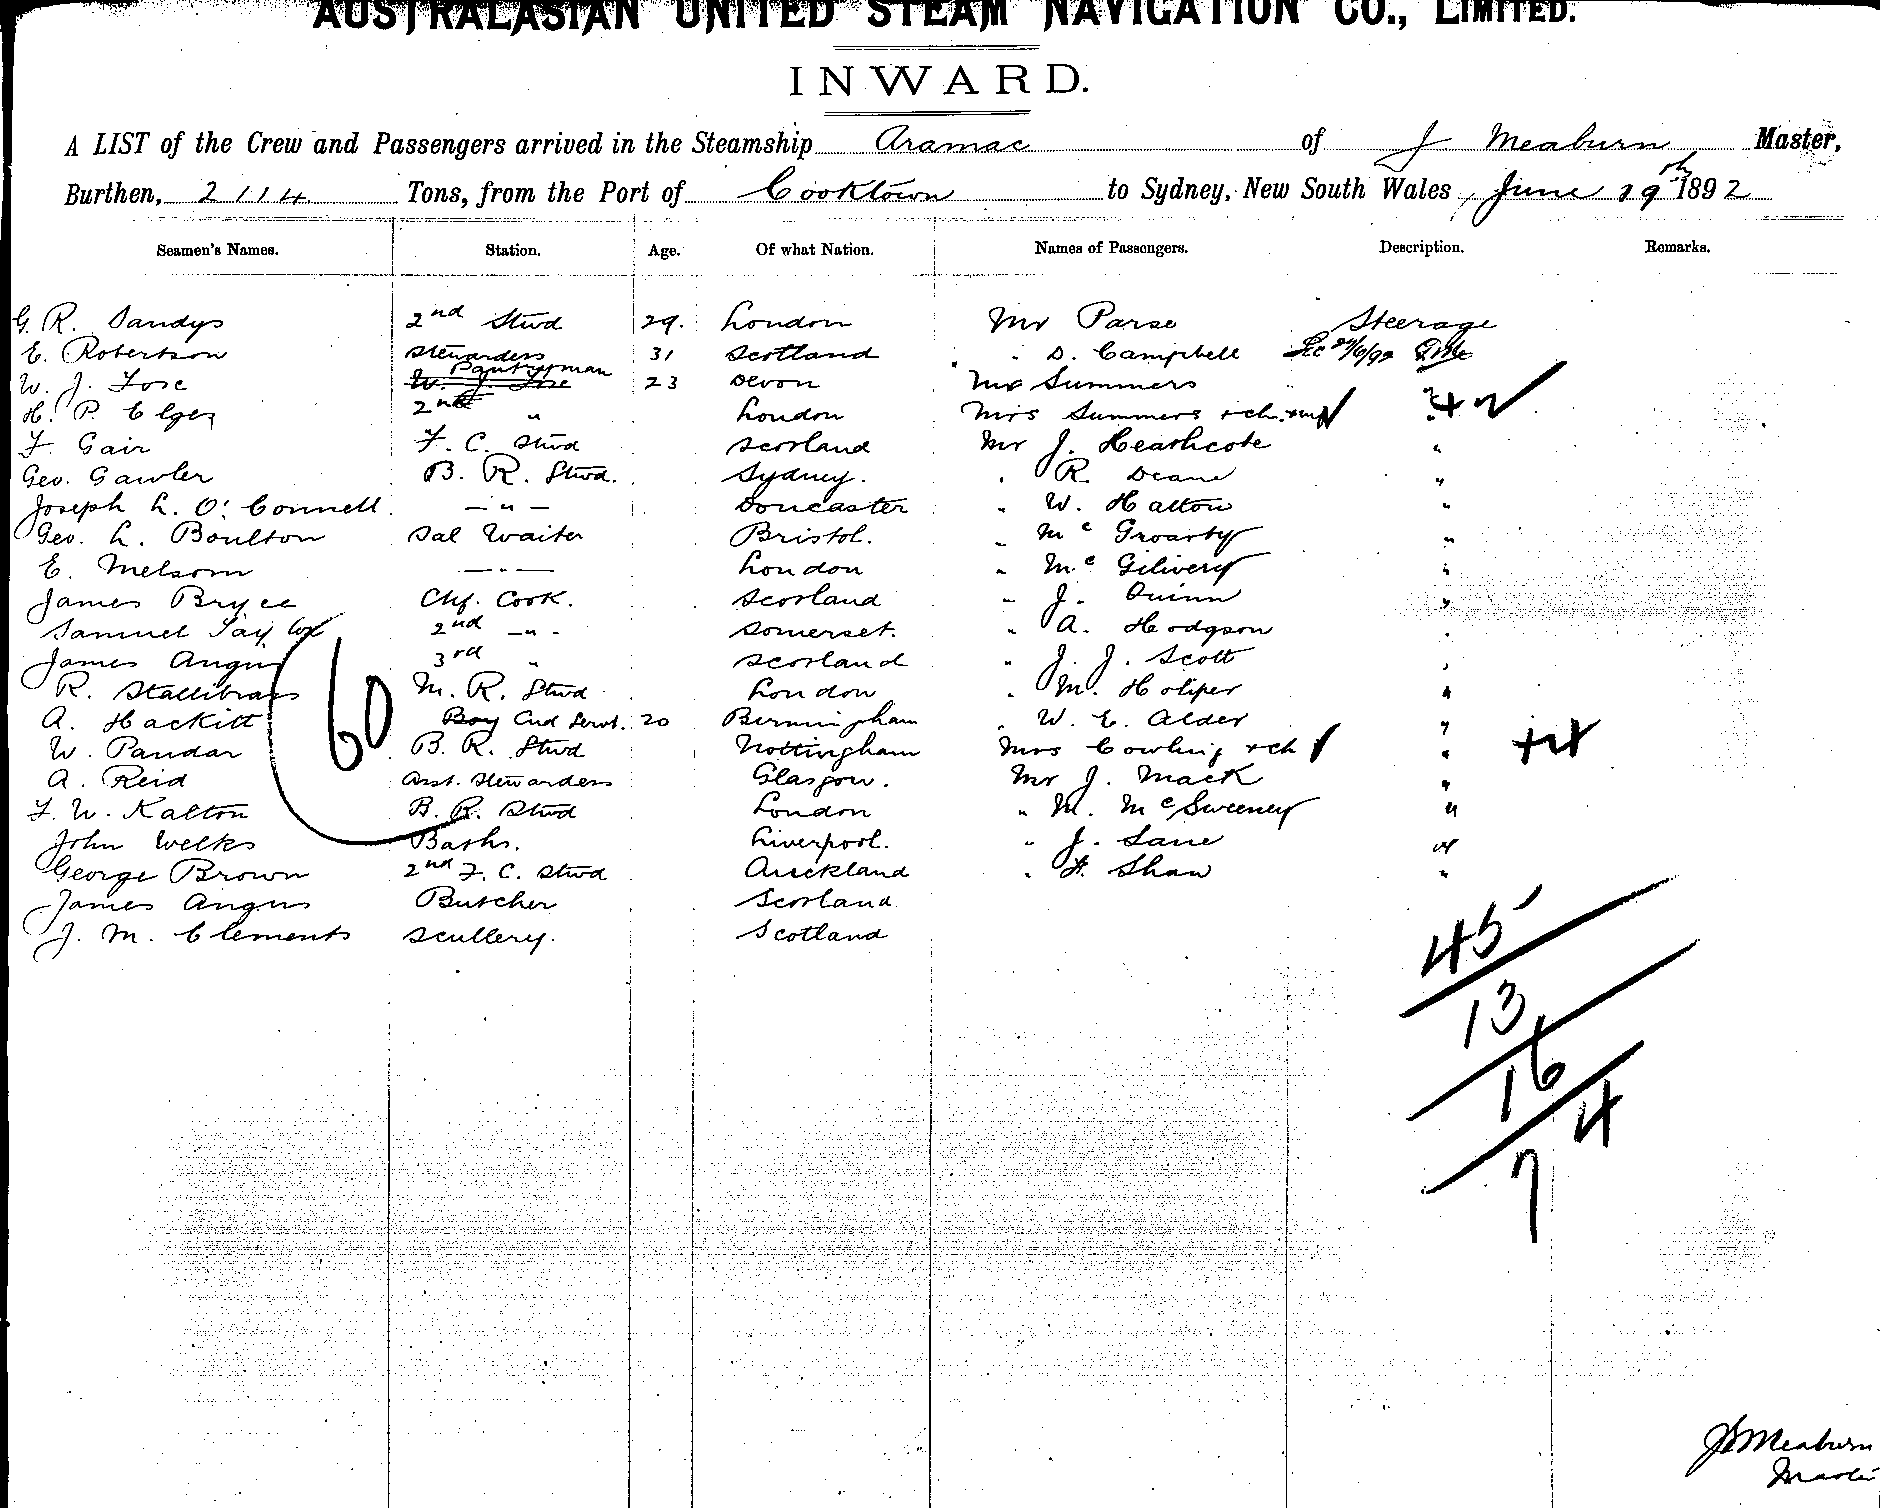 AUSTRALASIAN UNITED STEAM NAVIGATION CO., LIMITED.
INWARD.
A LIST of the Crew and Passengers arrived in the Steamship Aramac of J Meaburn Master,
Burthen, 2114 Tons, from the Port of Cooktown to Sydney, New South Wales, June 19th 1892
Seamen's Names. Station. Age. Of what Nation. Names of Passengers. Description. Remarks.
G. R. Sandys 2nd Stwd 29. London Mr Parse Steerage
E. Robertson Stewardess 31 Scotland " D. Campbell
W. J. Tose W. J. Tose Pantryman 23 Devon Mr Summers "
H. P. Elger 2nd " London Mrs Summers + ch.
F Gair F. C. Stwd Scotland Mr J. Heathcote "
Geo. Gawler B. R. Stwd. Sydney. " R. Deane "
Joseph L. O'Connell. — " — Doncaster " W. Halton "
Geo. L. Boulton Sal Waiter Bristol. " Mc Groarty "
E. Melsom — " — London " Mc Gilivery "
James Bryce Chf. Cook. Scotland " J. Quinn "
Samuel Taylor 2nd — " — Somerset. " A. Hodgson "
James Angus 3rd " Scotland " J. J. Scott "
R. Stallibrass M. R. Stwd London " M. Holper "
A. Hackitt Boy Cnd Servt. 20 Birmingham " W. E. Alder "
W. Pandar B. R. Stwd Nottingham Mrs Cowling + ch "
A. Reid Asst. Stewardess Glasgow. Mr J. Mack "
F. W. Kalton B. R. Stwd London " M. McSweeney "
John Welks Baths. Liverpool. " J. Lane "
George Brown 2nd F. C. Stwd Auckland " F. Shaw "
James Angus Butcher Scotland
J. M. Clements Scullery. Scotland
60
45
13
16
4
7
J Meaburn
Master